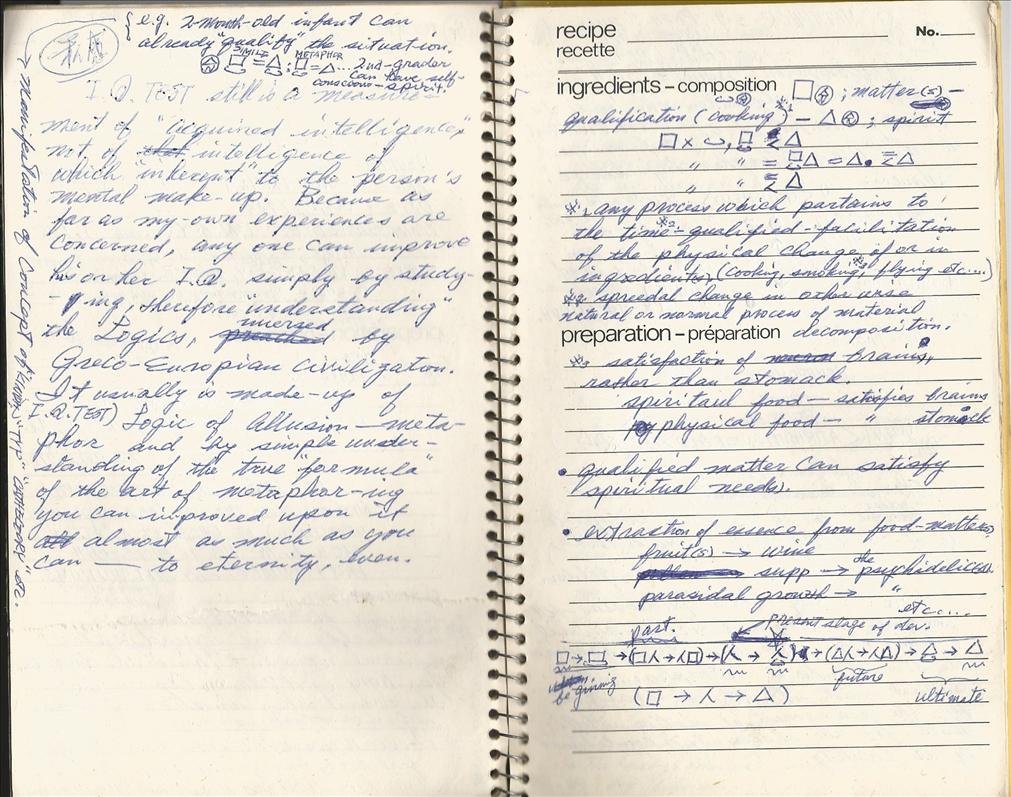 { e.g. 2-month-old infant can
already "qualify" the situation.
SIMILE METAPHOR
□ = △ ; □ = △ ... 2nd-grader
can have self-
conscious-spirit.
I.Q. TEST still is a measure-
ment of "acquired intelligence,"
not of that intelligence of
which "inherent" to the person's
mental make-up. Because as
far as my-own experiences are
concerned, any one can improve
his or her I.Q. simply by study-
-ing, therefore "understanding"
the Logics, preached inversed by
Greco-Europian civilization.
It usually is made-up of
(I.Q. TEST) Logic of Allusion — meta-
phor and by simple under-
standing of the true "formula"
of the art of metaphor-ing
you can improved upon it
almost as much as you
can — to eternity, even.
→ manifestation of Concept of "TYP" "CATHEGORY" etc.
recipe No.
recette
ingredients – composition □ ; matter(s) –
qualification (cooking) *1 – △ ; spirit
□ × ⌣, □ ≦ △
" " = □△ = △• ≦ △
" " ≦ △
*1 any process which partains to
the time *2 - qualified - facilitation
of the physical change, of or in
ingredient(s), (cooking, smoking *3, flying etc....)
*2 spreedal change in other wise
natural or normal process of material
preparation – préparation decomposition.
*3 satisfaction of brains,
rather than stomack.
spiritaul food — satisfies brains
physical food — " stomack
• qualified matter can satisfy
spiritual need(s).
• extraction of essence from food-matters,
fruit(s) → wine
supp → the psychidelic(s)
parasidal growth → "
etc....
past. present stage of dev.
□ → □ → (□人 → 人□) → (人 → 人) → (△人 → 人△) → △ → △
beginning future ultimate
(□ → 人 → △)